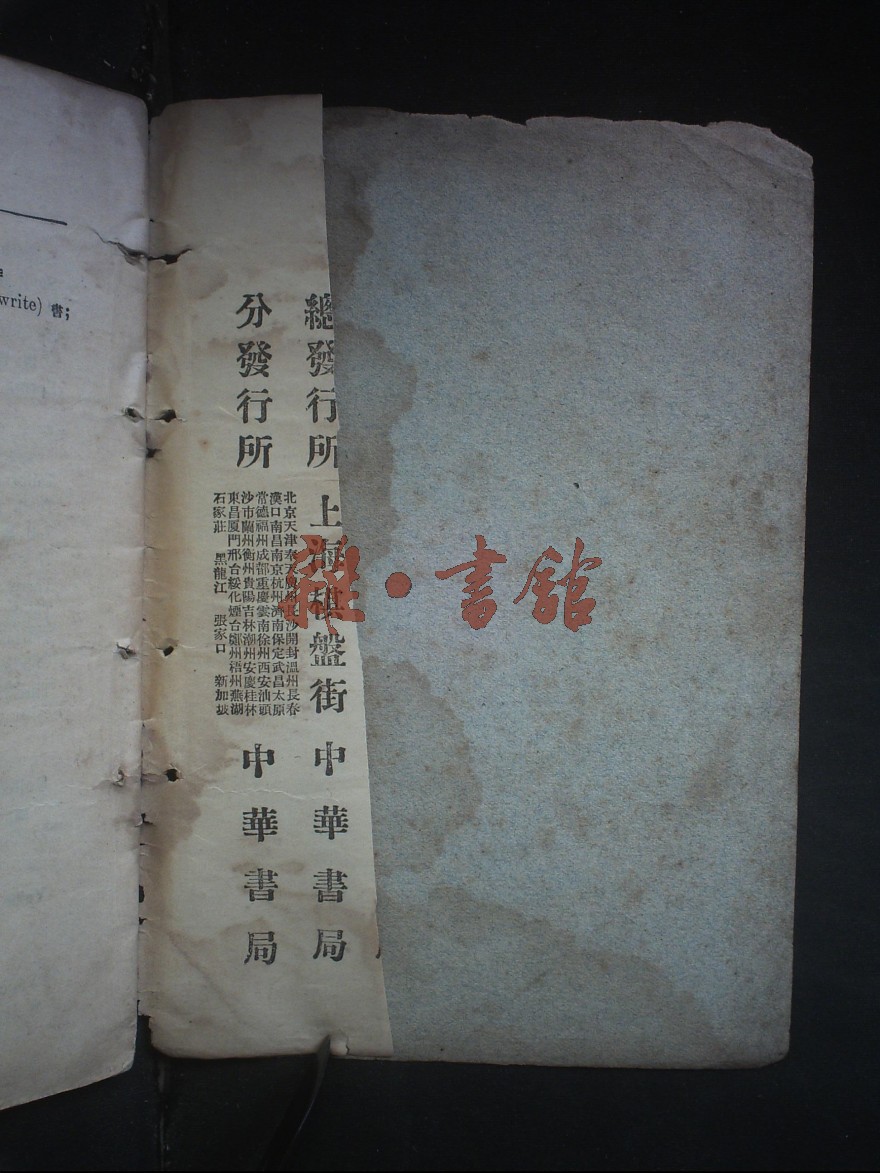 write) 書;
總發行所 上海棋盤街 中華書局
分發行所
北京天津奉天廣州長沙開封溫州長春
漢口南昌南京杭州濟南保定武昌太原
常德福州成都重慶雲南徐州西安汕頭
沙市蘭州衡州貴陽吉林潮州安慶桂林
東昌厦門邢台綏化煙台鄭州梧州蕪湖
石家莊 黑龍江 張家口 新加坡
中華書局
雜·書館